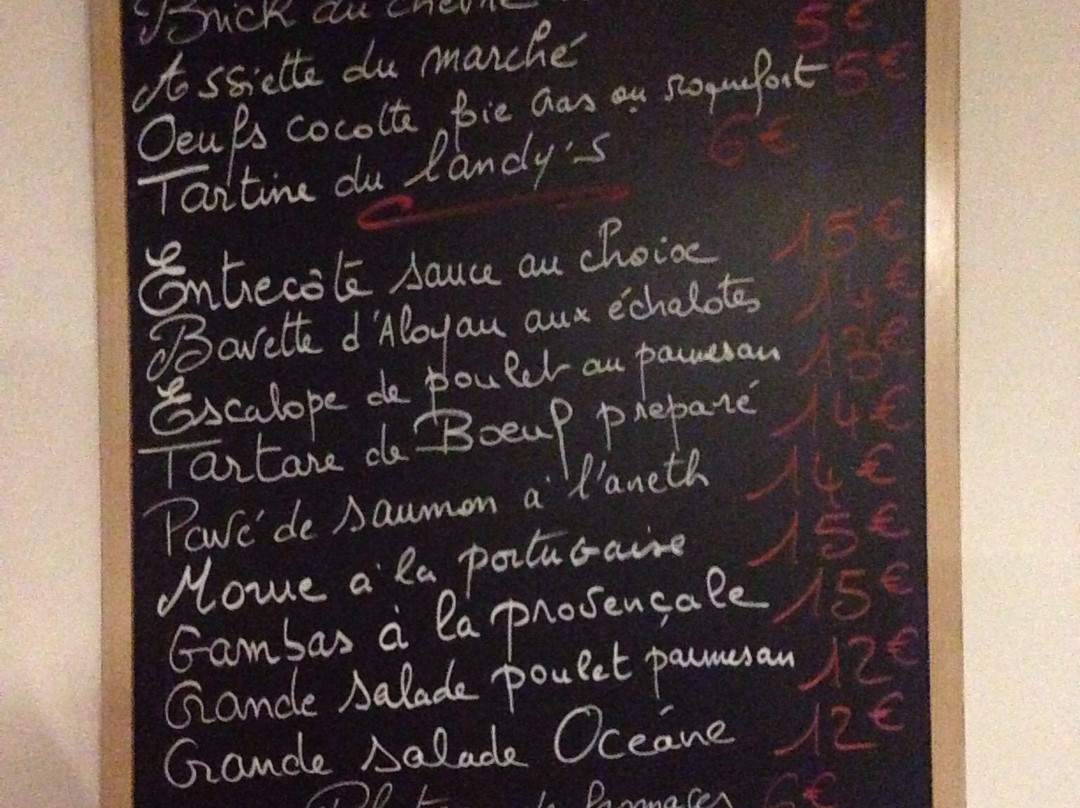 Brick au chèvre
Assiette du marché 5€
Oeufs cocotte foie Gras ou roquefort 5€
Tartine du Landy's 6€
Entrecôte sauce au choix 15€
Bavette d'Aloyau aux échalotes 14€
Escalope de poulet au parmesan 13€
Tartare de Boeuf préparé 14€
Pavé de saumon à l'aneth 14€
Morue à la portugaise 15€
Gambas à la provençale 15€
Grande salade poulet parmesan 12€
Grande salade Océane 12€
fromages 6€